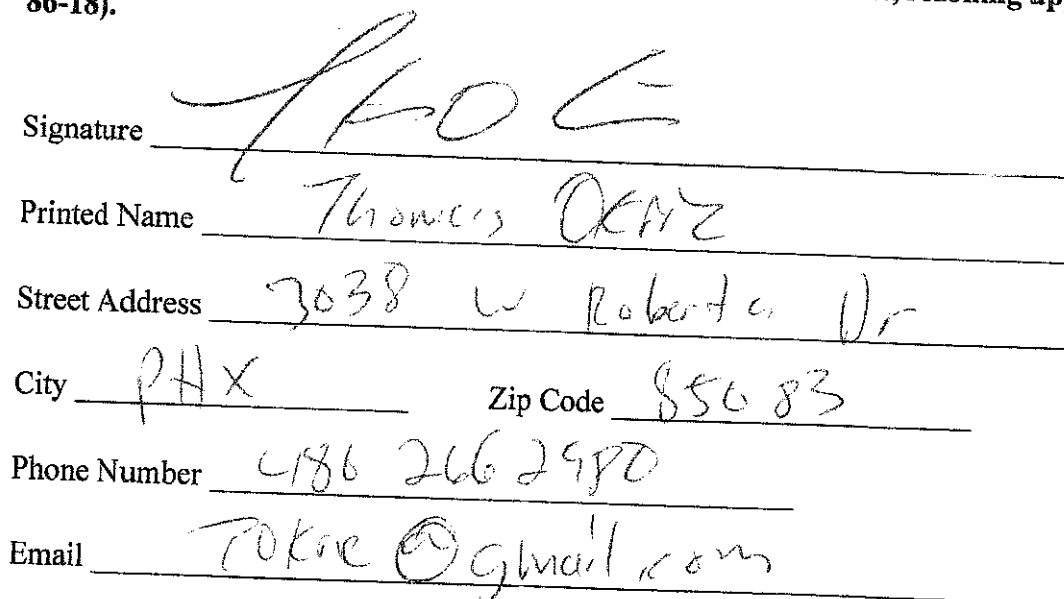 86-18).
Signature
Printed Name Thomas
Street Address 3038 W Roberta Dr
City PHX Zip Code 85083
Phone Number 480 266 2980
Email @gmail.com